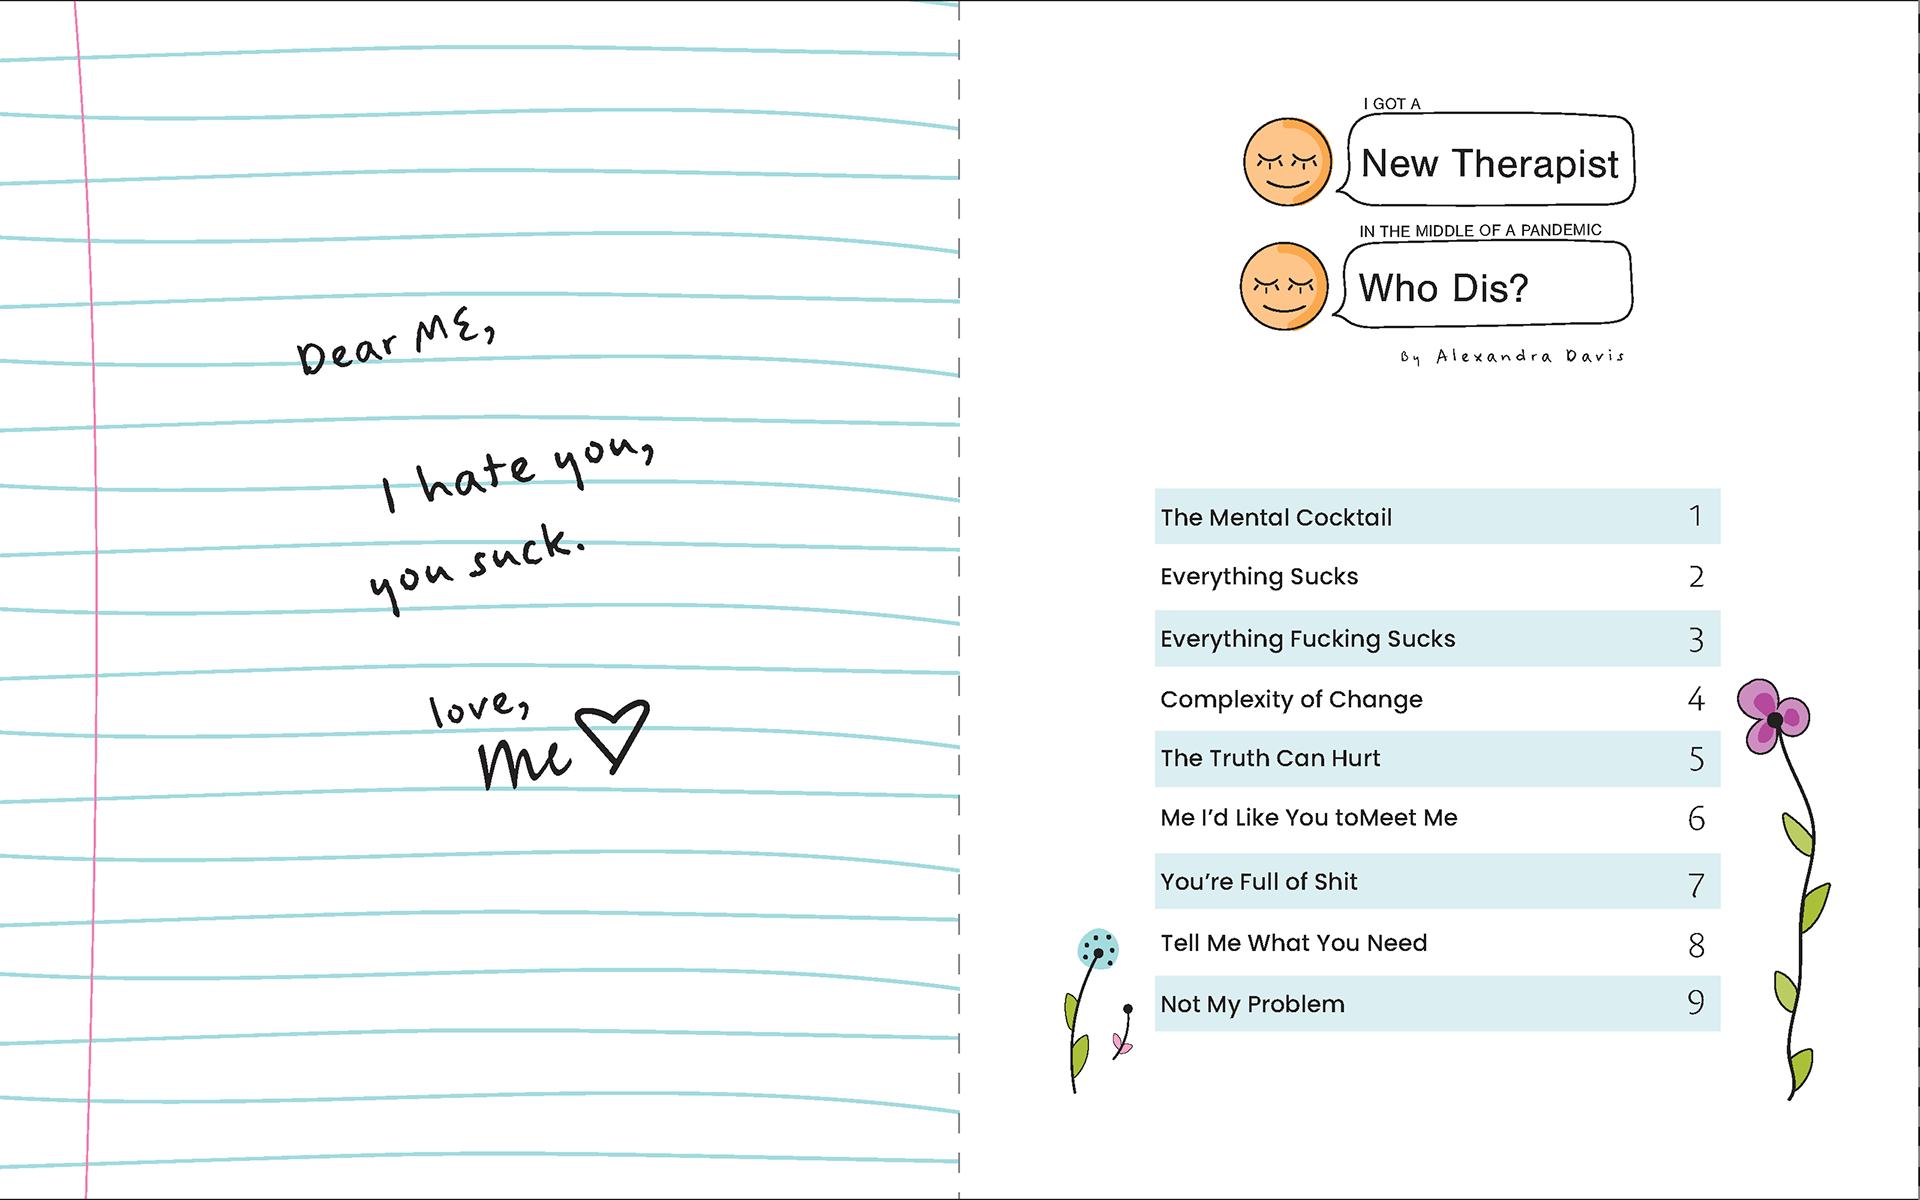 Dear ME,
I hate you,
you suck.
love,
Me
I GOT A
New Therapist
IN THE MIDDLE OF A PANDEMIC
Who Dis?
By Alexandra Davis
The Mental Cocktail 1
Everything Sucks 2
Everything Fucking Sucks 3
Complexity of Change 4
The Truth Can Hurt 5
Me I'd Like You toMeet Me 6
You're Full of Shit 7
Tell Me What You Need 8
Not My Problem 9